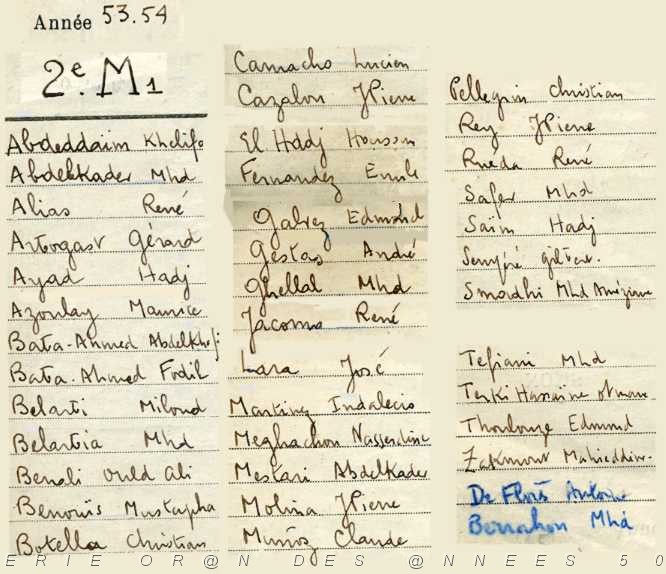 Année 53.54
2e. M1
Abdeddaïm Khelifa
Abdelkader Mhd
Alias René
Arbogast Gérard
Ayad Hadj
Azoulay Maurice
Bata-Ahmed Abdelkhafi
Bata-Ahmed Fodil
Belarbi Miloud
Belarbia Mhd
Benali Ould Ali
Benouïs Mustapha
Botella Christian
Camacho Lucien
Cazalou JPierre
El Hadj Houssin
Fernandez Emile
Galvez Edmond
Gestas André
Ghellal Mhd
Jacomo René
Lara José
Martinez Indalecio
Meghachou Nasserdine
Mestari Abdelkader
Molina JPierre
Muñoz Claude
Pellegrin Christian
Rey JPierre
Rueda René
Safer Mhd
Saïm Hadj
Smadhi Mhd Améziane
Tefiani Mhd
Terki Hassaïne Otmane
Thoulouze Edmond
Mahieddin
De Floris Antoine
Mhd
ERIE OR@N DES @NNEES 50